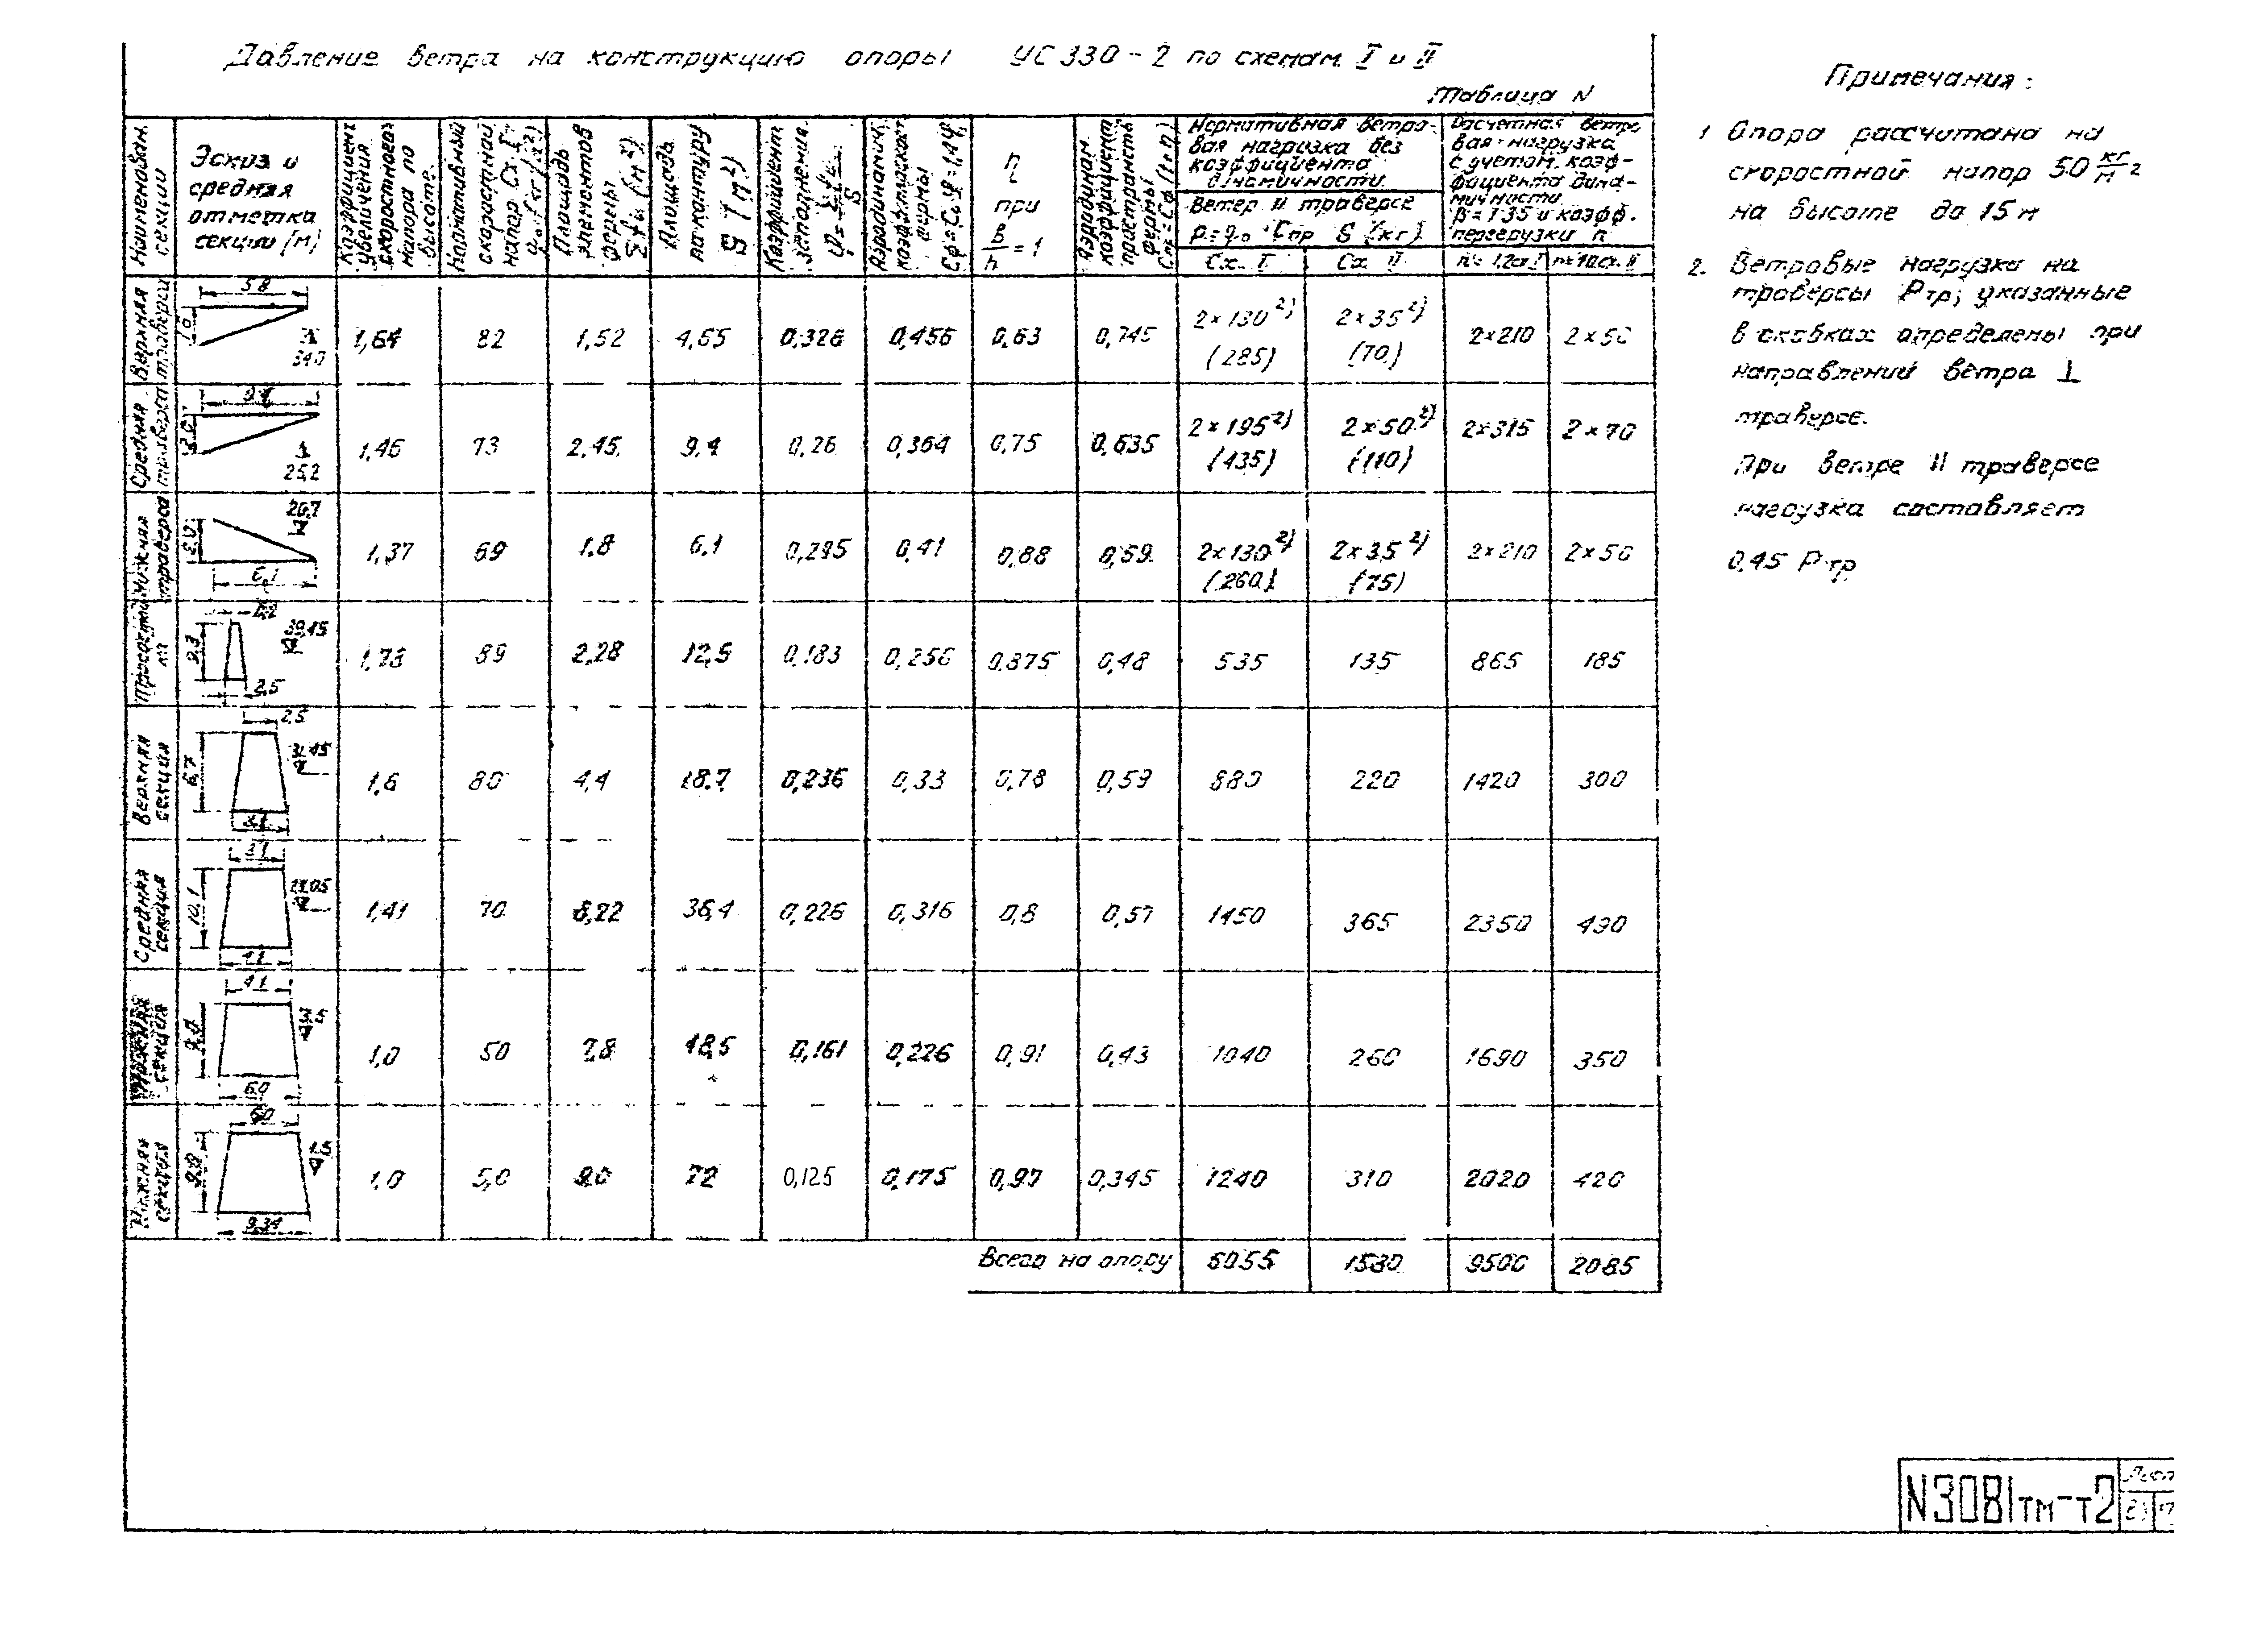 Давление ветра на конструкцию опоры УС 330-2 по схемам I и II
Таблица N
Наименован. секции
Эскиз и средняя отметка секции (м)
Коэффициент увеличения скоростного напора по высоте.
Нормативный скоростной напор Сх. I
Площадь элементов фермы Σfи (м²)
Площадь по контуру S (м²)
Коэффициент заполнения
Аэродинамич. коэфф. плоской фермы Cф=C₀φ=1,4φ
η при b/h = 1
Аэродинам. коэффициент пространств. фермы Cпр=Cф(1+η)
Нормативная ветровая нагрузка без коэффициента динамичности.
Ветер II траверсе
P=q₀ · Cпр S (кг)
Сх. I Сх II
Расчетная ветровая нагрузка с учетом коэффициента динамичности β=1.35 и коэфф. перегрузки n
n=1.2сх I n=1.0сх. II
Верхняя траверса 5.8 34.0 1,64 82 1,52 4,65 0,326 0,456 0,63 0,745 2×130²⁾ (285) 2×35²⁾ (70) 2×210 2×50
Средняя траверса 2.0 25,2 1,46 73 2,45 9,4 0,26 0,364 0,75 0,635 2×195²⁾ (435) 2×50²⁾ (110) 2×315 2×70
Нижняя траверса 20,7 2.0 6,1 1,37 69 1.8 6.1 0,295 0,41 0,88 0,59 2×130²⁾ (260) 2×35²⁾ (75) 2×210 2×50
39,45 9,3 2,5 1,78 89 2,28 12,5 0,183 0,256 0.875 0,48 535 135 865 185
Верхняя секция 2,5 31,45 6,7 3,1 1,6 80 4,4 18.7 0,236 0,33 0,78 0,59 880 220 1420 300
Средняя секция 3,1 10.1 4,1 1,41 70 8,22 36,4 0,226 0,316 0,8 0,57 1450 365 2350 490
секция 4,1 6,0 1,0 50 7,8 48,5 0,161 0,226 0,91 0,43 1040 260 1690 350
Нижняя секция 6,0 9,34 1,0 5,0 9.0 72 0,125 0,175 0,97 0,345 1240 310 2020 420
Всего на опору 6055 1530 9500 2085
Примечания:
1 Опора рассчитана на
скоростной напор 50 кг/м²
на высоте до 15 м
2. Ветровые нагрузки на
траверсы Pтр, указанные
в скобках определены при
направлений ветра ⊥
траверсе.
При ветре II траверсе
нагрузка составляет
0,45 Pтр
N3081тм-т2
Лист